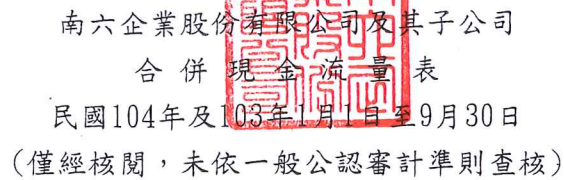 南六企業股份有限公司及其子公司
合併現金流量表
民國104年及103年1月1日至9月30日
(僅經核閱，未依一般公認審計準則查核)